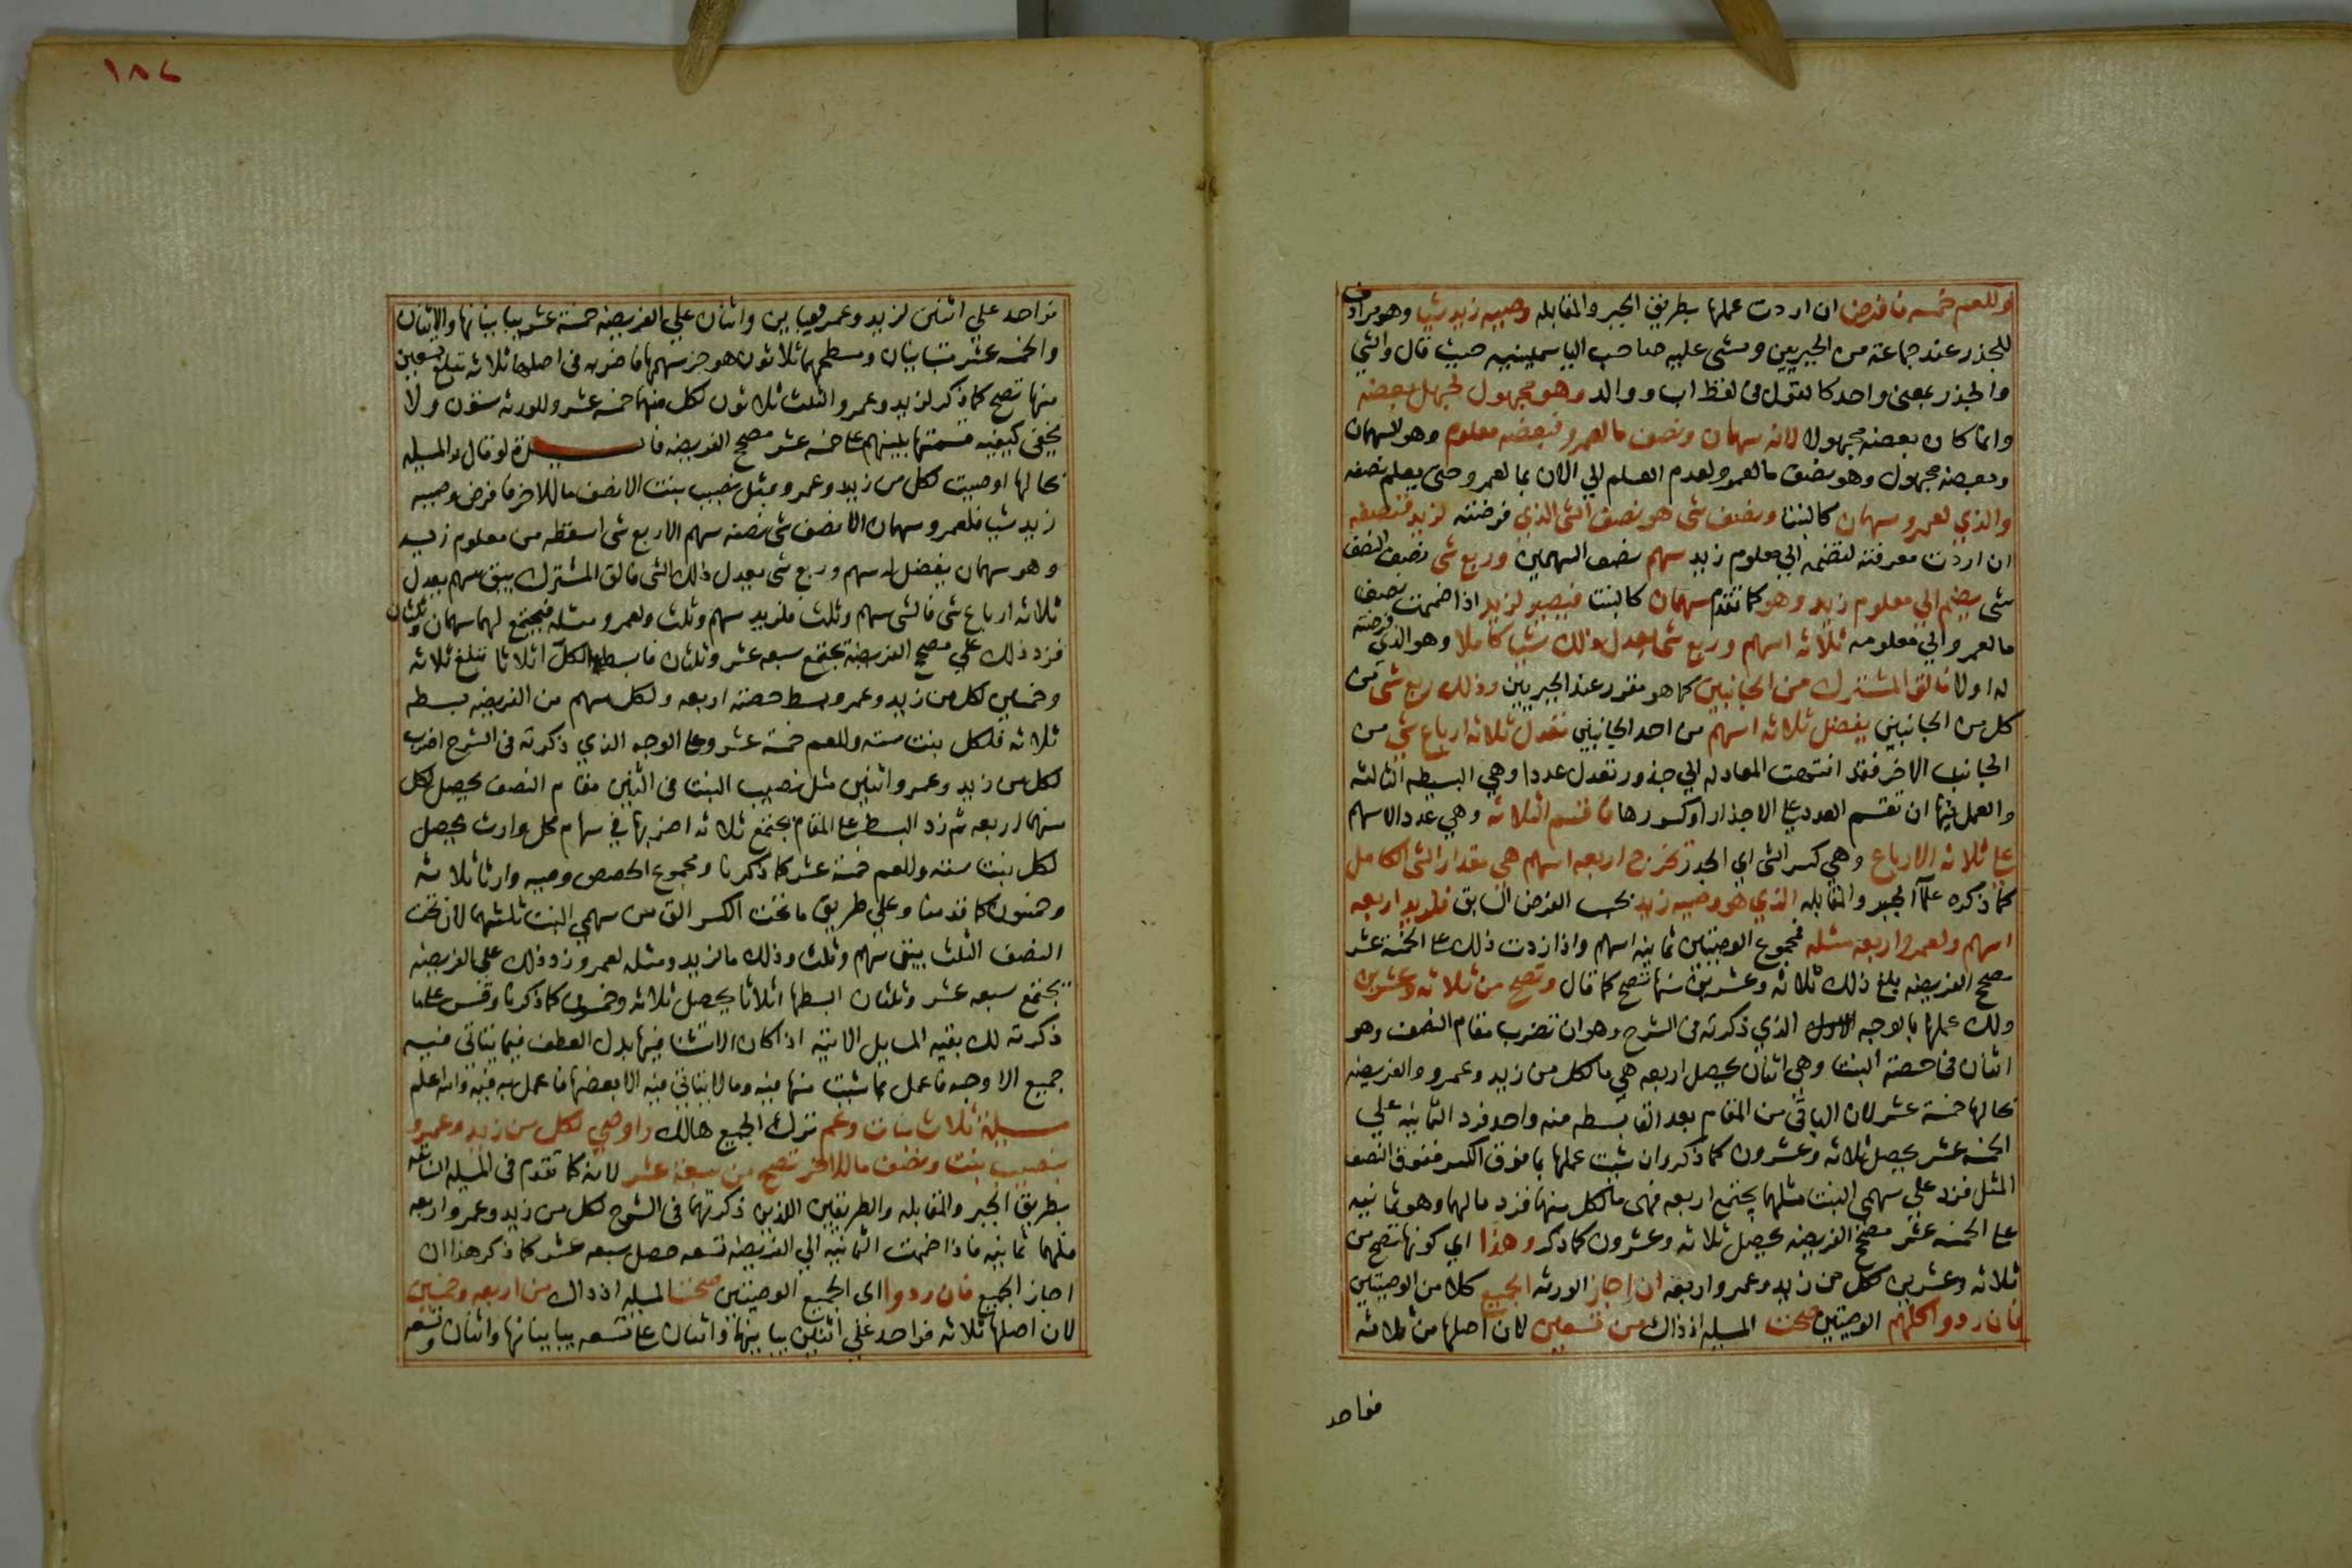 وللعم خمسه فافرض ان اردت عملها بطريق الجبر والمقابله وصيه زيد شيا وهو مرادف
للجذر عند جماعة من الجبريين ومشى عليه صاحب الياسمينيه حيث قال والشي
والجذر بمعنى واحد كالقول في لفظ اب ووالد وهو مجهول لجهل بعضه
وانما كان بعضه مجهولا لانه سهمان ونصف مالعمرو فبعضه معلوم وهو السهمان
وبعضه مجهول وهو نصف مالعمرو لعدم العلم الي الان بما لعمرو حتى يعلم نصفه
والذي لعمرو سهمان كالبنت ونصف شى هو نصف الشى الذي فرضته لزيد فنصفه
ان اردت معرفته لتضمه الي معلوم زيد سهم نصف السهمين وربع شى نصف النصف
شى يضم الي معلوم زيد وهو كما تقدم سهمان كالبنت فيصير لزيد اذا ضممت نصف
مالعمرو الي معلومه ثلاثه اسهم وربع شى يعدل ذلك شيا كاملا وهو الذي فرضته
له اولا فالق المشترك من الجانبين كما هو مقرر عند الجبريين وذلك ربع شى من
كل من الجانبين يفضل ثلاثه اسهم من احد الجانبين تعدل ثلاثه ارباع شي من
الجانب الاخر فقد انتهت المعادله الي جذور تعدل عددا وهي البسيطه الثالثه
والعمل فيها ان تقسم العدد على الاجذار او كسورها فاقسم الثلاثه وهي عدد الاسهم
على ثلاثه الارباع وهي كسر الشى اي الجذر تخرج اربعه اسهم هي مقدار الشى الكامل
كما ذكره علما الجبر والمقابله الذي هو وصيه زيد بحسب الفرض السابق فلزيد اربعه
اسهم ولعمرو اربعه مثله فمجموع الوصيتين ثمانيه اسهم واذا زدت ذلك على الخمسة عشر
مصح الفريضه بلغ ذلك ثلاثه وعشرين منها تصح كما قال وتصح من ثلاثه وعشرين
ولك عملها بالوجه الاول الذي ذكرته في الشرح وهو ان تضرب مقام النصف وهو
اثنان في حصته البنت وهي اثنان يحصل اربعه هي مالكل من زيد وعمرو والفريضه
بحالها خمسة عشر لان الباقي من المقام بعد القا بسطه منه واحد فزد الثمانيه علي
الخمسه عشر يحصل ثلاثه وعشرون كما ذكر وان شيت عملها بما فوق الكسر ففوق النصف
المثل فزد علي سهمي البنت مثلهما يجتمع اربعه فهى مالكل منهما فزد مالهما وهو ثمانيه
على الخمسه عشر مصح الفريضه يحصل ثلاثه وعشرون كما ذكر وهذا اي كونها تصح من
ثلاثه وعشرين لكل من زيد وعمرو اربعه ان اجاز الورثه الجميع كلا من الوصيتين
فان ردوا كلهم الوصيتين صحت المسيله اذ ذاك من تسعين لان اصلها من ثلاثه
فواحد
١٨٧
فواحد علي اثنين لزيد وعمرو يباين واثنان علي الفريضه خمسة عشر يباينانها والاثنان
والخمسه عشر متباينان ومسطحهما ثلاثون هو جز سهمها فاضربه في اصلها ثلاثه تبلغ تسعين
منها تصح كما ذكر لزيد وعمرو الثلث ثلاثون لكل منهما خمسه عشر وللورثه ستون ولا
يخفى كيفيه قسمتها بينهم على خمسه عشر مصح الفريضه فايــــدة لو قال والمسيله
بحالها اوصيت لكل من زيد وعمرو بمثل نصيب بنت الا نصف ماللاخر فافرض وصيه
زيد شيا فلعمرو سهمان الا نصف شى نصفه سهم الا ربع شى اسقطه من معلوم زيد
وهو سهمان يفضل له سهم وربع شى يعدل ذلك الشى فالق المشترك يبق سهم يعدل
ثلاثه ارباع شى فالشى سهم وثلث فلزيد سهم وثلث ولعمرو مثله فيجتمع لهما سهمان وثلثان
فزد ذلك علي مصح الفريضة يجتمع سبعه عشر وثلثان فابسط الكل اثلاثا تبلغ ثلاثه
وخمسين لكل من زيد وعمرو بسط حصته اربعه ولكل سهم من الفريضه بسطه
ثلاثه فلكل بنت سته وللعم خمسة عشر وعلى الوجه الذي ذكرته في الشرح اضرب
لكل من زيد وعمرو اثنين مثل نصيب البنت في اثنين مقام النصف يحصل لكل
منهما اربعه ثم زد البسط على المقام يجتمع ثلاثه اضربها في سهام كل وارث يحصل
لكل بنت سته وللعم خمسة عشر كما ذكرنا ومجموع الحصص وصيه وارثا ثلاثه
وخمسون كما قدمنا وعلي طريق ما تحت الكسر الق من سهمي البنت ثلثهما لان تحت
النصف الثلث يبق سهم وثلث وذلك مالزيد ومثله لعمرو زد ذلك علي الفريضه
يجتمع سبعه عشر وثلثان ابسطها اثلاثا يحصل ثلاثه وخمسون كما ذكرنا وقس على ما
ذكرته لك بقيه المسايل الاتيه اذا كان الاستثنا فيها بدل العطف فيما يتاتى فيه
جميع الاوجه فاعمل بما شيت منها فيه ومالا يتاتى فيه الا بعضها فاعمل به فيه والله اعلم
مسيلة ثلاث بنات وعم ترك الجميع هالك واوصي لكل من زيد وعمرو
بنصيب بنت ونصف ماللاخر تصح من سبعة عشر لانه كما تقدم في المسيله السابقه
بطريق الجبر والمقابله والطريقين اللذين ذكرتهما في الشرح لكل من زيد وعمرو اربعه
فلهما ثمانيه فاذا ضممت الثمانيه الي الفريضه تسعه حصل سبعه عشر كما ذكر هذا ان
اجاز الجميع فان ردوا اى الجميع الوصيتين صحت المسيله اذ ذاك من اربعه وخمسين
لان اصلها ثلاثه فواحد علي اثنين يباينها واثنان على تسعه يباينانها واثنان وتسعه